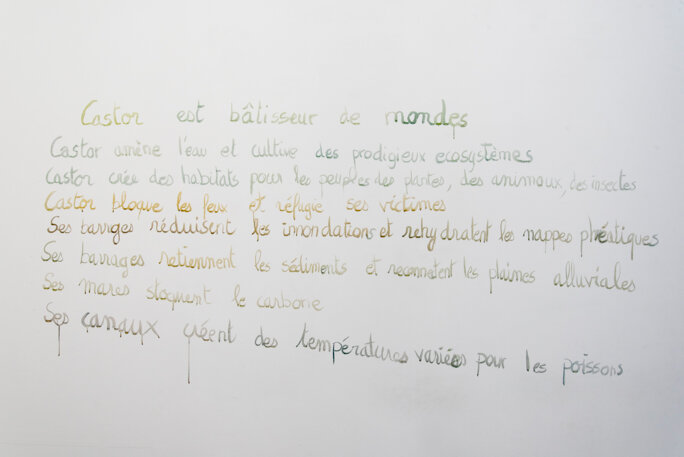 Castor est bâtisseur de mondes
Castor amène l'eau et cultive des prodigieux ecosystèmes
Castor crée des habitats pour les peuples des plantes, des animaux, des insectes
Castor bloque les feux et réfugie ses victimes
Ses barrages réduisent les innondations et rehydratent les nappes phréatiques
Ses barrages retiennent les sédiments et reconnetent les plaines alluviales
Ses mares stoquent le carbone
Ses canaux créent des températures variées pour les poissons